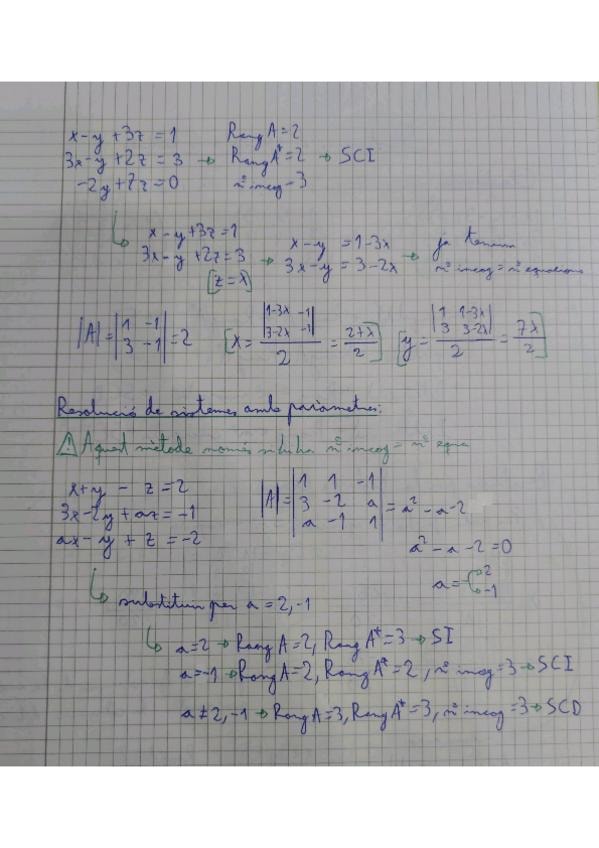 x-y+3z=1 Rang A=2
3x-y+2z=3 → Rang A*=2 → SCI
-2y+7z=0 nº incog=3
x-y+3z=1 x-y=1-3λ → ja tenim
3x-y+2z=3 → 3x-y=3-2λ nº incog=nº equacions
[z=λ]
|A|=|1 -1; 3 -1|=2 [x=|1-3λ -1; 3-2λ -1|/2=2+λ/2] [y=|1 1-3λ; 3 3-2λ|/2=7λ/2]
Resolució de sistemes amb paràmetres:
⚠ Aquest mètode només nº incog=nº equa
x+y-z=2 |A|=|1 1 -1; 3 -2 a; a -1 1|=a²-a-2
3x-2y+az=-1
ax-y+z=-2 a²-a-2=0
a= 2
-1
substituir per a=2,-1
a=2 → Rang A=2, Rang A*=3 → SI
a=-1 → Rang A=2, Rang A*=2, nº incog=3 → SCI
a≠2,-1 → Rang A=3, Rang A*=3, nº incog=3 → SCD